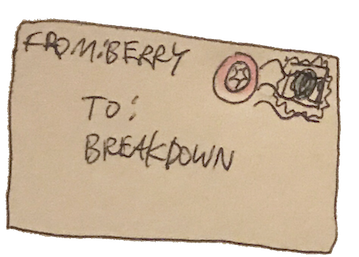 FROM: BERRY
TO:
BREAKDOWN